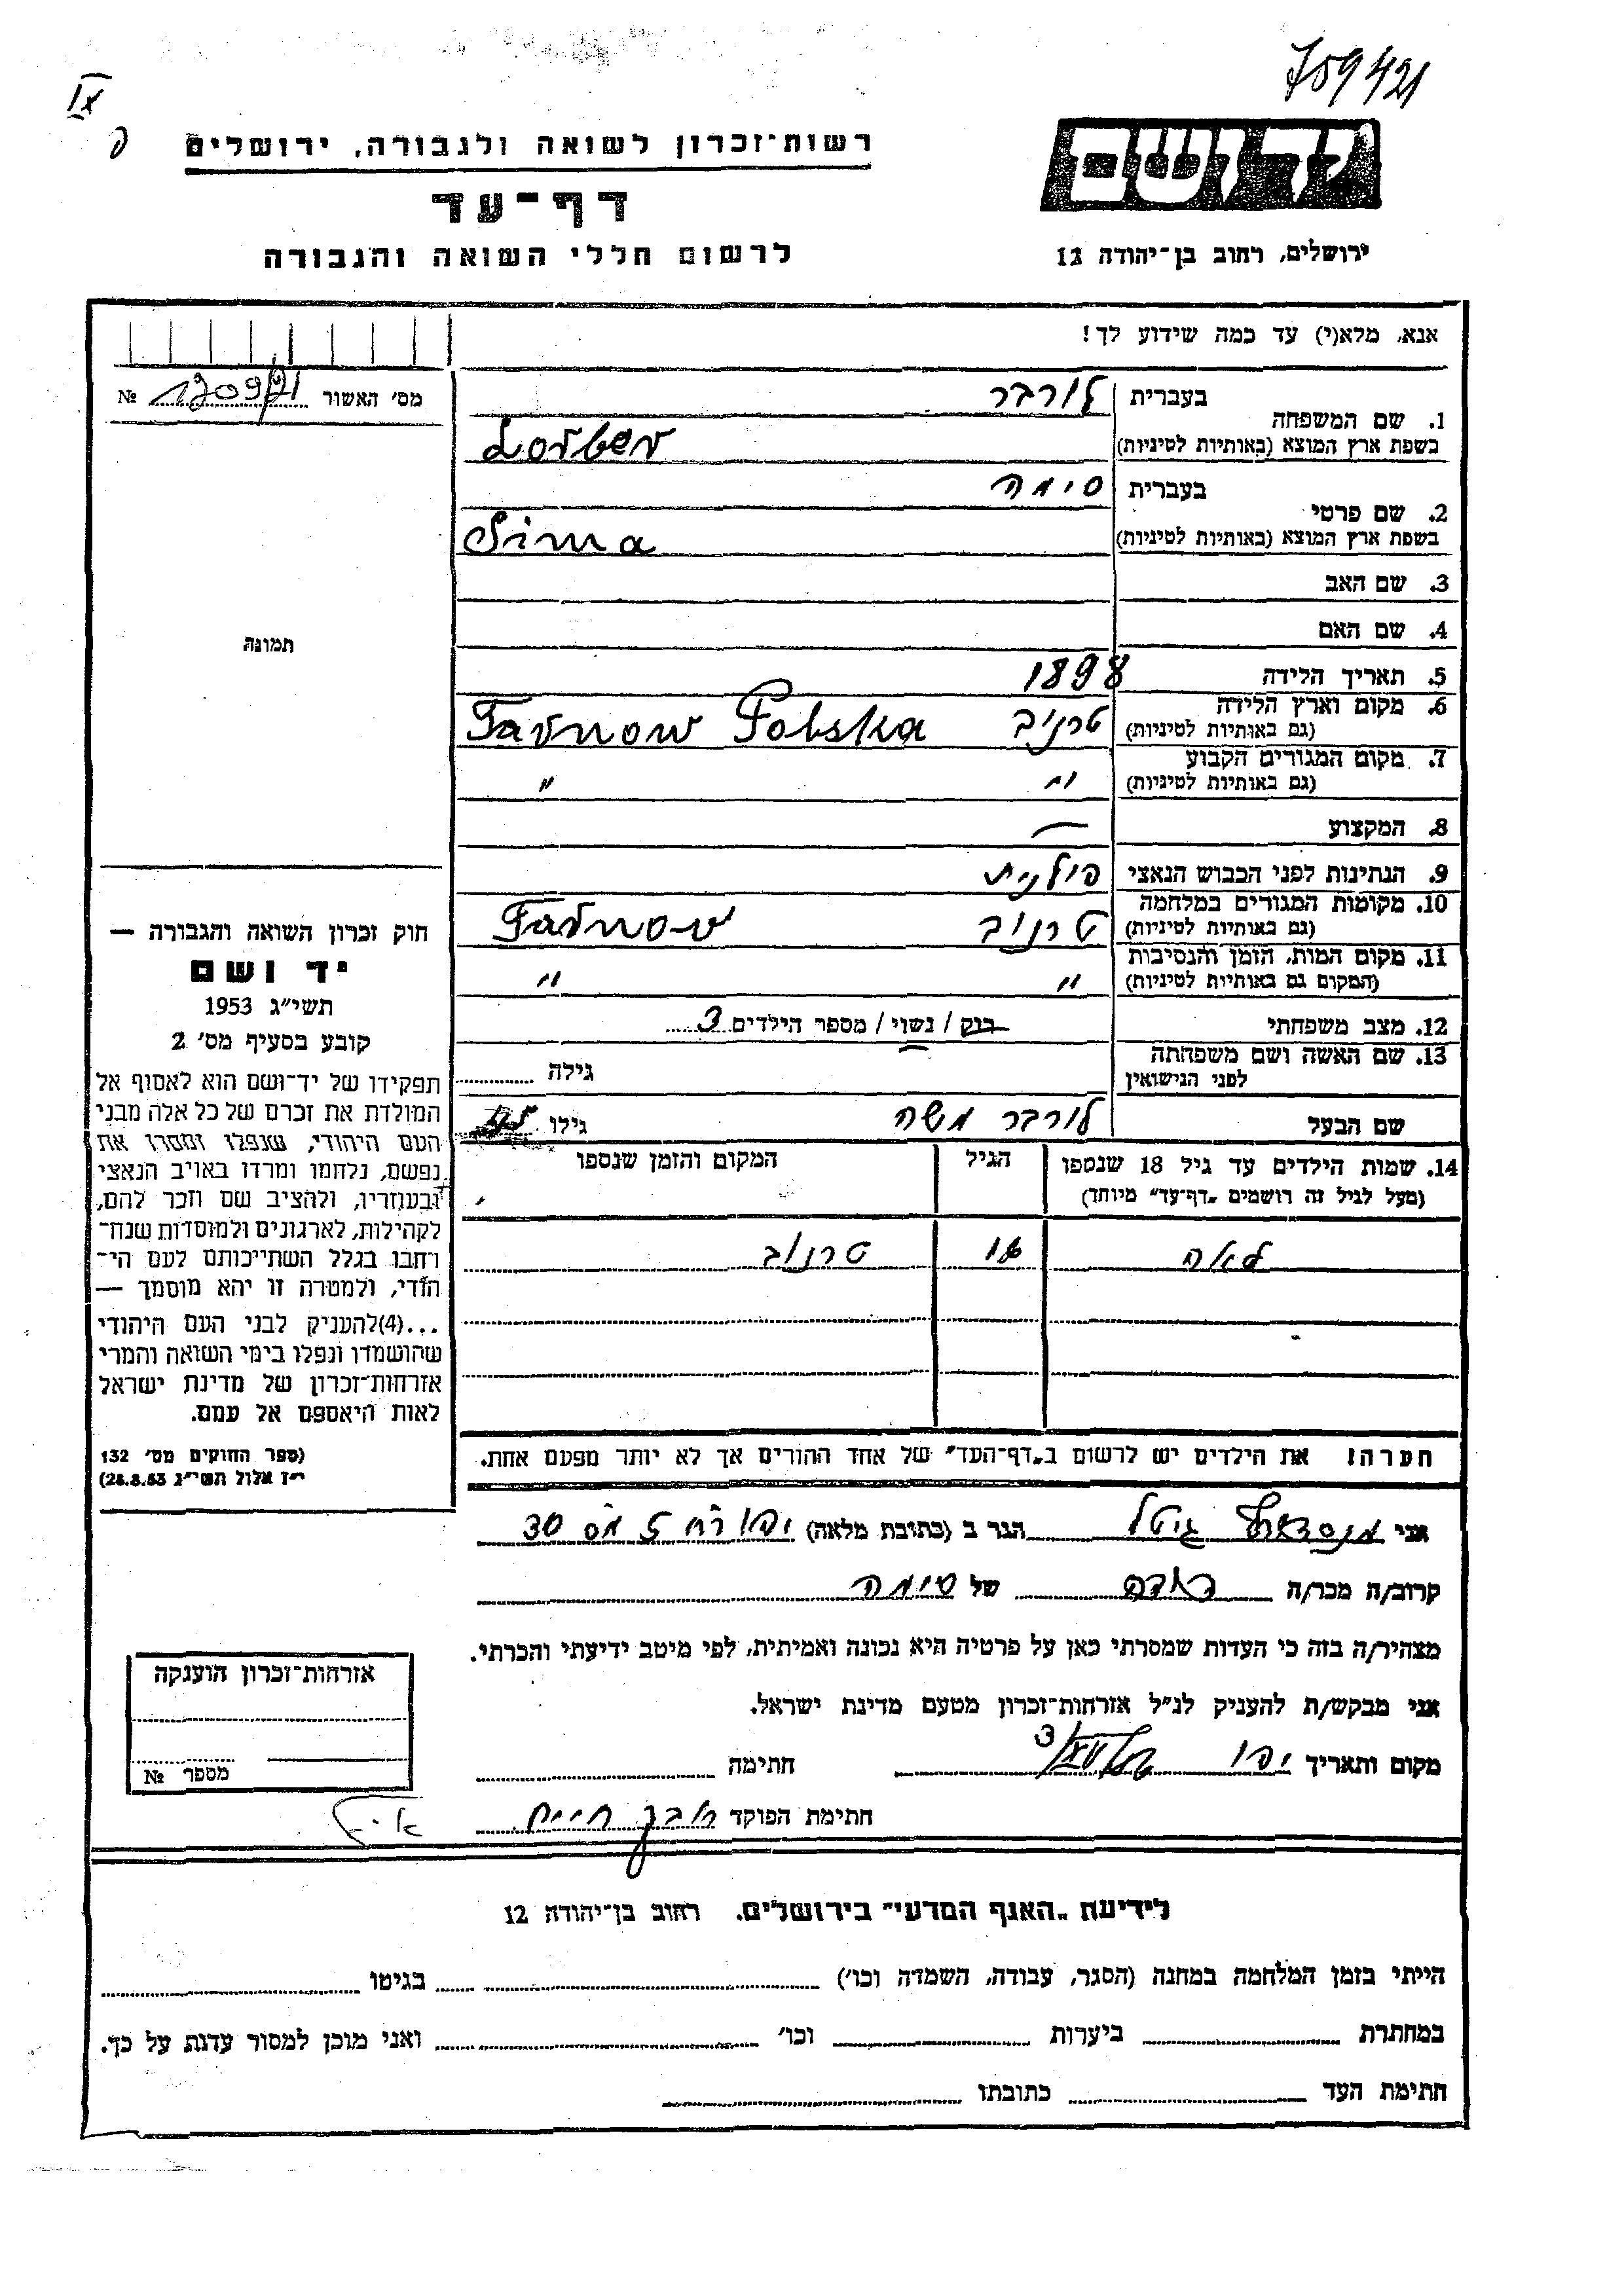 759421
IX
רשות־זכרון לשואה ולגבורה, ירושלים
דף־עד
לרשום חללי השואה והגבורה
יד ושם
ירושלים, רחוב בן־יהודה 12
אנא, מלא(י) עד כמה שידוע לך!
מס׳ האשור №
1. שם המשפחה
בעברית לורבר
בשפת ארץ המוצא (באותיות לטיניות) Lorber
2. שם פרטי
בעברית סימה
בשפת ארץ המוצא (באותיות לטיניות) Sima
3. שם האב
4. שם האם
תמונה
5. תאריך הלידה 1898
6. מקום וארץ הלידה
(גם באותיות לטיניות) טרניב Tarnow Polska
7. מקום המגורים הקבוע
(גם באותיות לטיניות) " "
8. המקצוע —
9. הנתינות לפני הכבוש הנאצי פולנית
10. מקומות המגורים במלחמה
(גם באותיות לטיניות) טרנוב Tarnow
11. מקום המות, הזמן והנסיבות
(המקום גם באותיות לטיניות) " "
12. מצב משפחתי רווק / נשוי / מספר הילדים 3
13. שם האשה ושם משפחתה
לפני הנישואין גילה
שם הבעל לורבר משה גילו
14. שמות הילדים עד גיל 18 שנספו
(מעל לגיל זה רושמים „דף־עד" מיוחד)
הגיל
המקום והזמן שנספו
לאה טרנוב
הערה! את הילדים יש לרשום ב„דף־העד" של אחד ההורים אך לא יותר מפעם אחת.
חוק זכרון השואה והגבורה —
יד ושם
תשי״ג 1953
קובע בסעיף מס׳ 2
תפקידו של יד־ושם הוא לאסוף אל
המולדת את זכרם של כל אלה מבני
העם היהודי, שנפלו ומסרו את
נפשם, נלחמו ומרדו באויב הנאצי
ובעוזריו, ולהציב שם וזכר להם,
לקהילות, לארגונים ולמוסדות שנח־
רבו בגלל השתייכותם לעם הי־
הודי, ולמטרה זו יהא מוסמך —
...(4)להעניק לבני העם היהודי
שהושמדו ונפלו בימי השואה והמרי
אזרחות־זכרון של מדינת ישראל
לאות היאספם אל עמם.
(ספר החוקים מס׳ 132
י״ז אלול תשי״ג 28.8.53)
אני גיטל הגר ב (כתובת מלאה) יפו רח 5 מס 30
קרוב/ה מכר/ה דודה של סימה
מצהיר/ה בזה כי העדות שמסרתי כאן על פרטיה היא נכונה ואמיתית, לפי מיטב ידיעתי והכרתי.
אני מבקש/ת להעניק לנ״ל אזרחות־זכרון מטעם מדינת ישראל.
מקום ותאריך יפו חתימה
חתימת הפוקד חיים
אזרחות־זכרון הוענקה
מספר №
לידיעת „האגף המדעי" בירושלים, רחוב בן־יהודה 12
הייתי בזמן המלחמה במחנה (הסגר, עבודה, השמדה וכו׳) בגיטו
במחתרת ביערות וכו׳ ואני מוכן למסור עדות על כך.
חתימת העד כתובתו